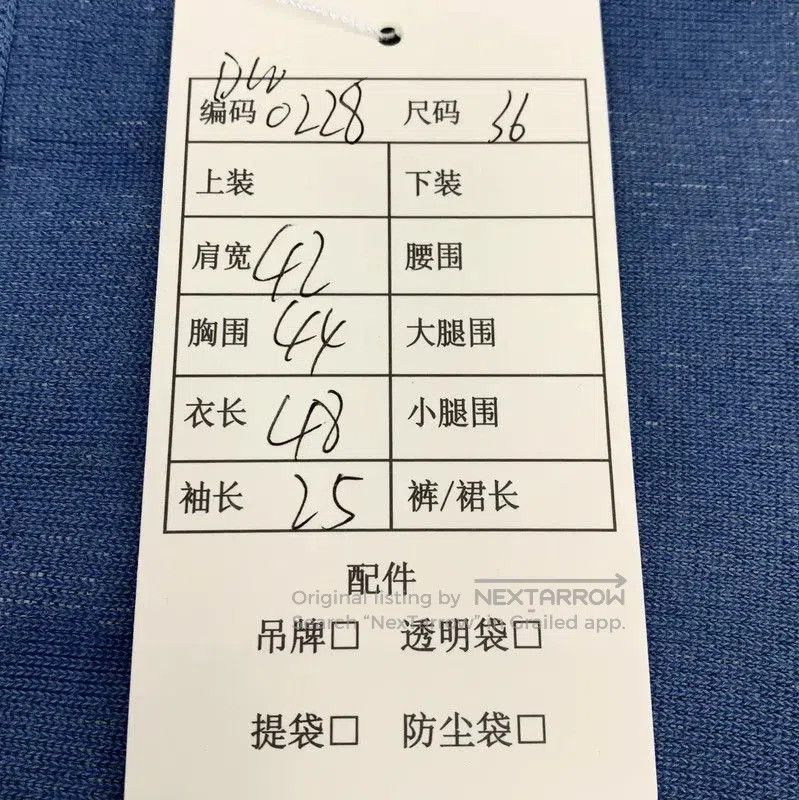 DW
编码 0228 尺码 36
上装 下装
肩宽 42 腰围
胸围 44 大腿围
衣长 48 小腿围
袖长 25 裤/裙长
配件
Original listing by NEXTARROW
Search "NexTarrow" in Grailed app.
吊牌□ 透明袋□
提袋□ 防尘袋□